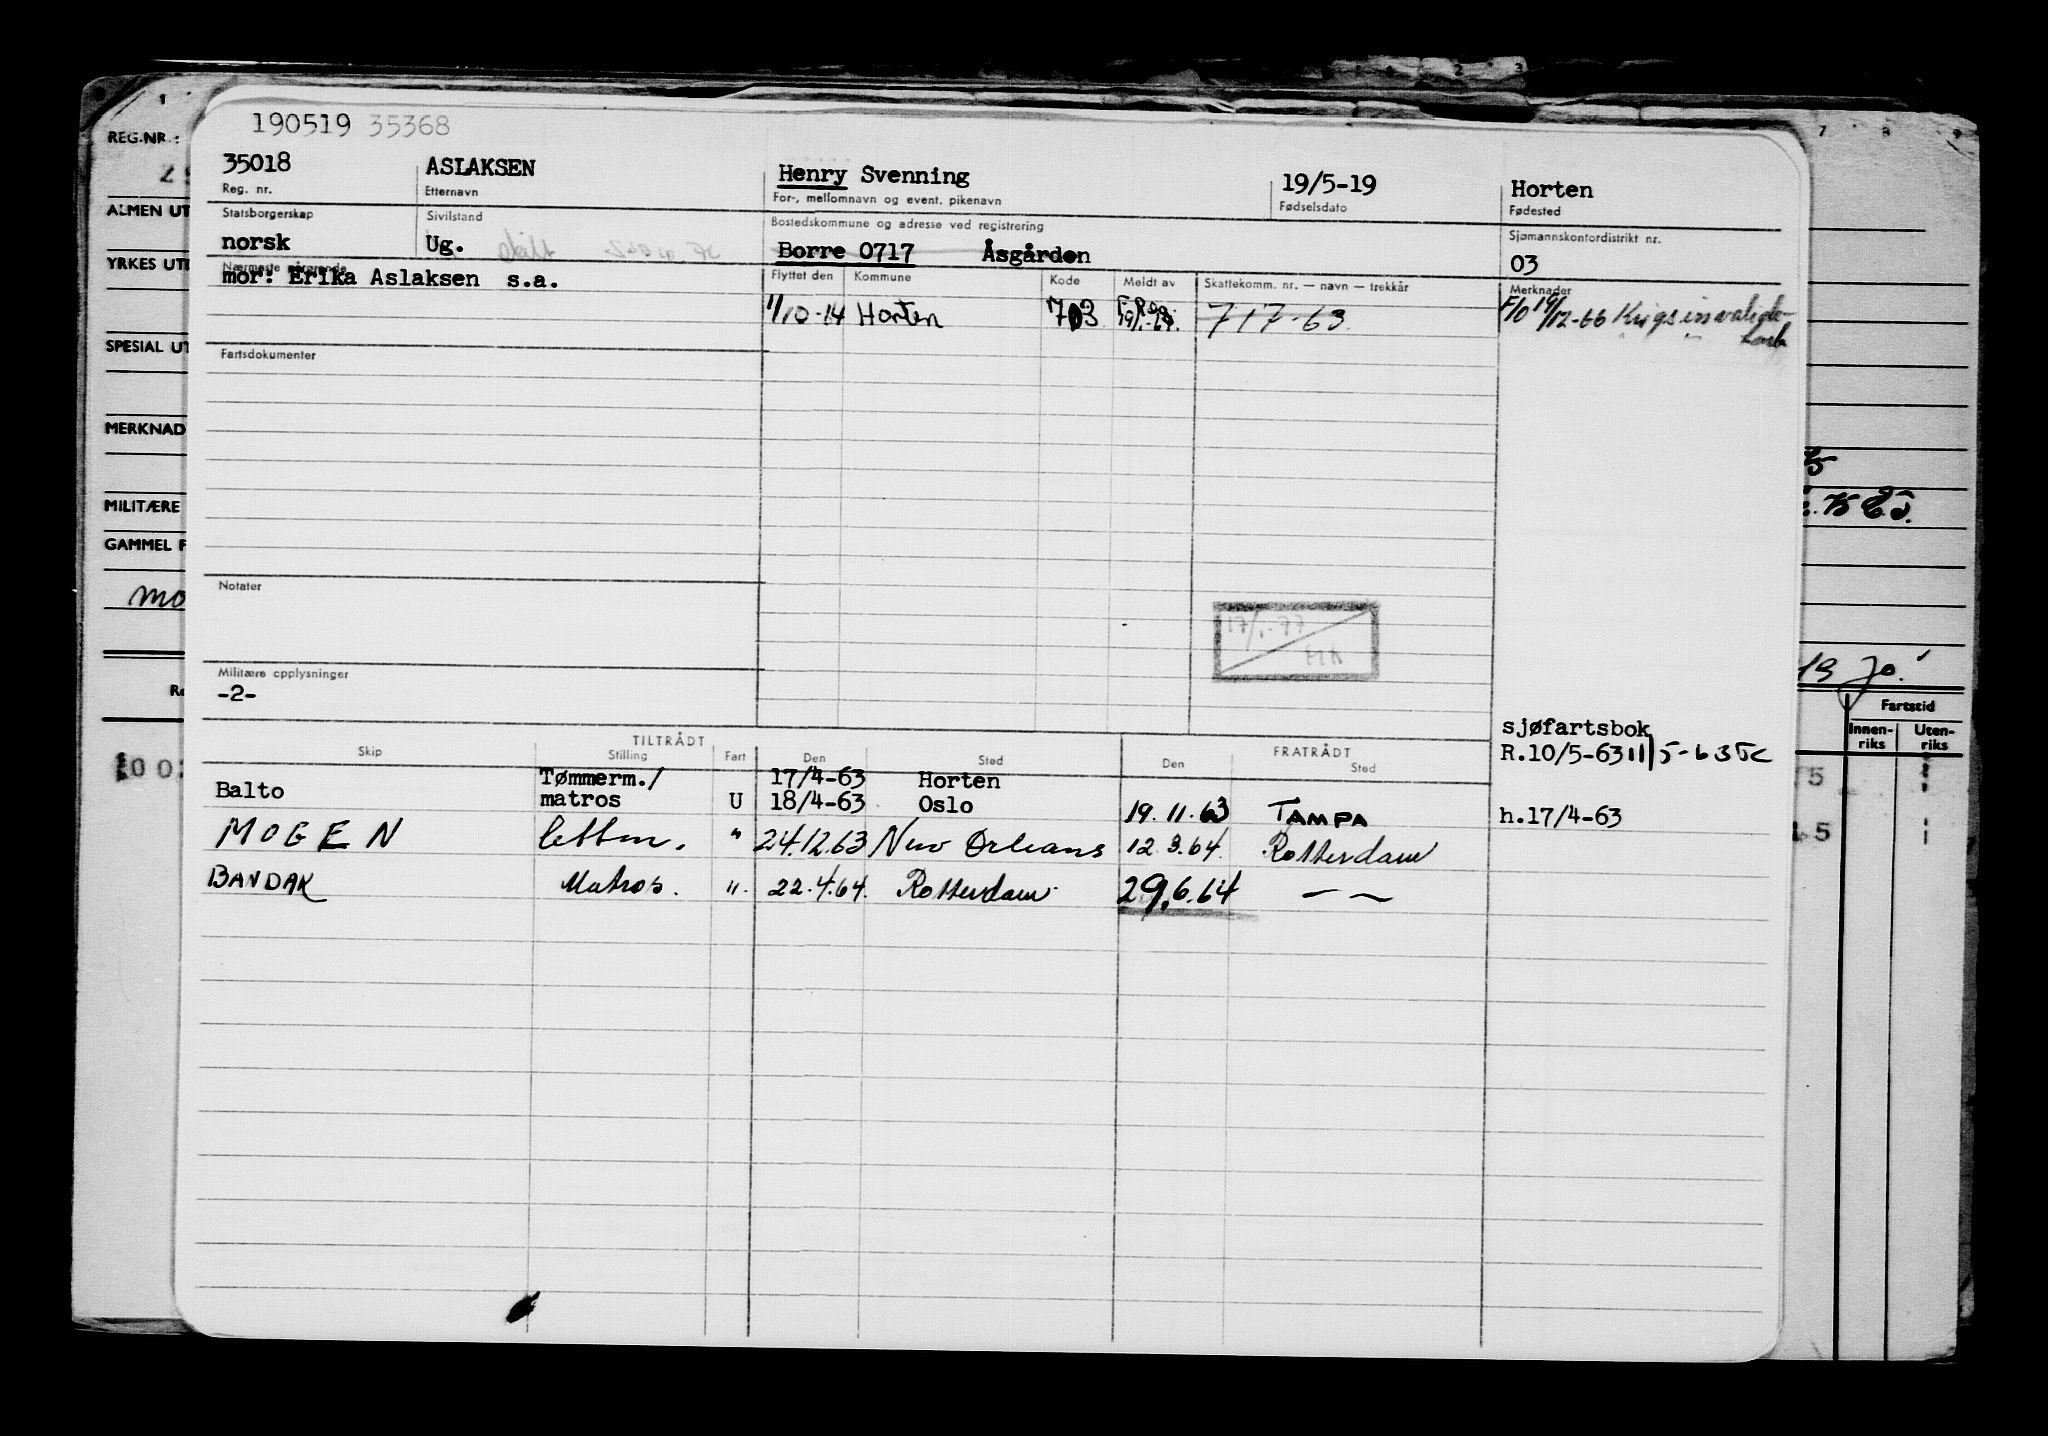 190519 35368
REG.NR.:
35018 ASLAKSEN Henry Svenning 19/5-19 Horten
Reg. nr. Etternavn For-, mellomnavn og event. pikenavn Fødselsdato Fødested
ALMEN UT
Statsborgerskap Sivilstand Bostedskommune og adresse ved registrering Sjømannskontordistrikt nr.
norsk Ug. Borre 0717 Åsgården 03
YRKES UTD
Nærmeste pårørende Flyttet den Kommune Kode Meldt av Skattekomm. nr. — navn — trekkår Merknader
mor: Erika Aslaksen s.a.
1/10-14 Horten 703 717-63 F/O 19/12-66 Krigsinvalide-
SPESIAL UT
Fartsdokumenter
MERKNAD
MILITÆRE
GAMMEL F
Notater
mo
17/1-77
Militære opplysninger
-2-
19 Jo.
Fartstid
Innen- Uten-
riks riks
sjøfartsbok
R.10/5-63 11/5-63
TILTRÅDT FRATRÅDT
Skip Stilling Fart Den Sted Den Sted
Balto Tømmerm./ 17/4-63 Horten
matros U 18/4-63 Oslo 19.11.63 TAMPA h.17/4-63
MOGEN lettm. " 24.12.63 New Orleans 12.3.64. Rotterdam
BANDAK Matros. ". 22.4.64. Rotterdam 29.6.64 — —